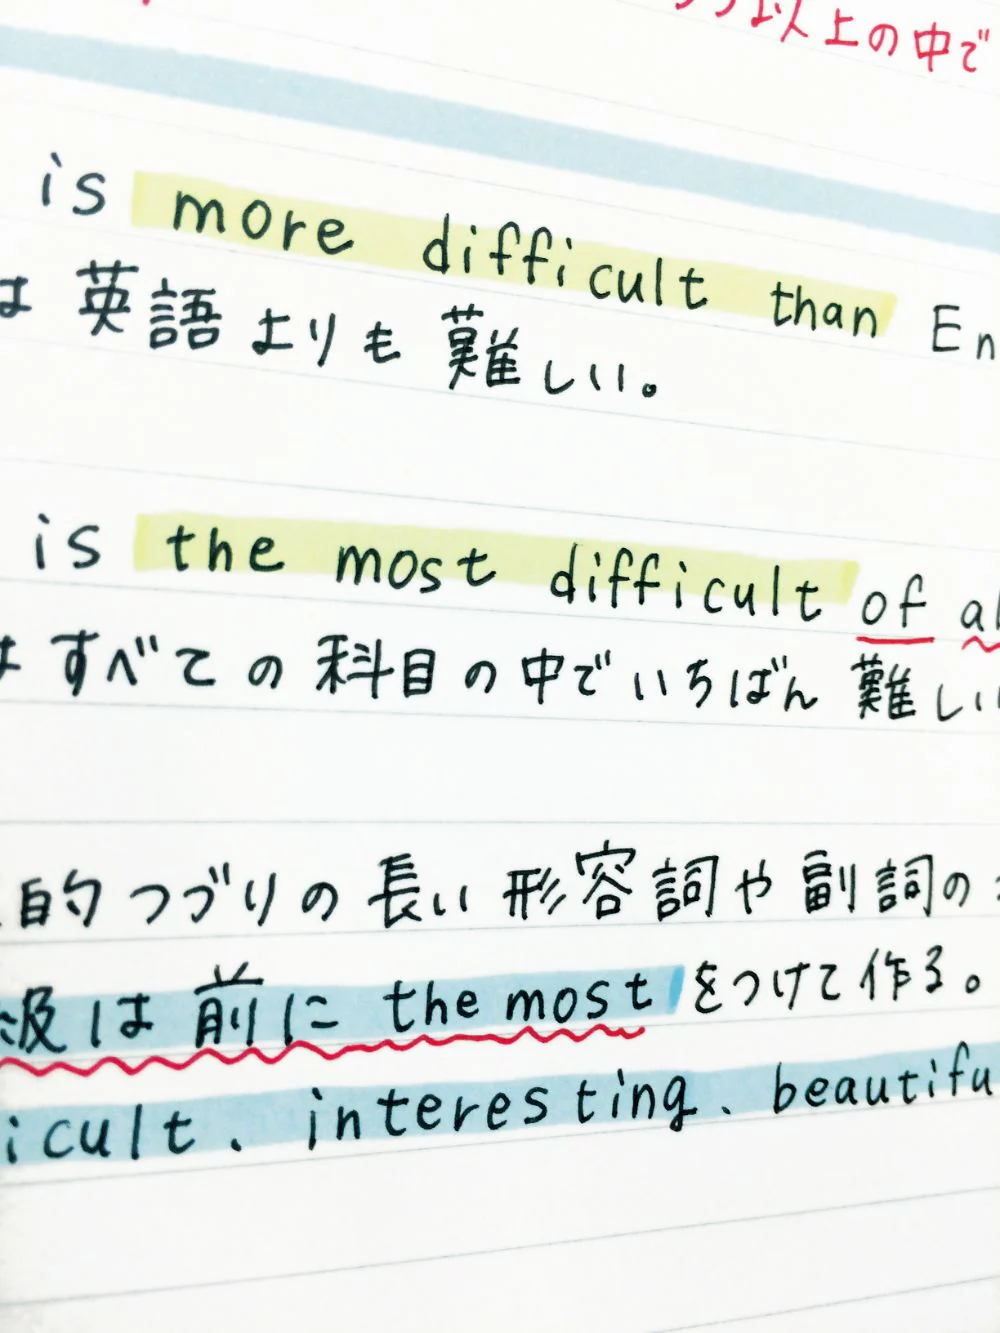 以上の中で
is more difficult than En
は英語よりも難しい。
is the most difficult of al
はすべての科目の中でいちばん難しい
的つづりの長い形容詞や副詞の
級は前に the most をつけて作る。
icult. interesting. beautifu